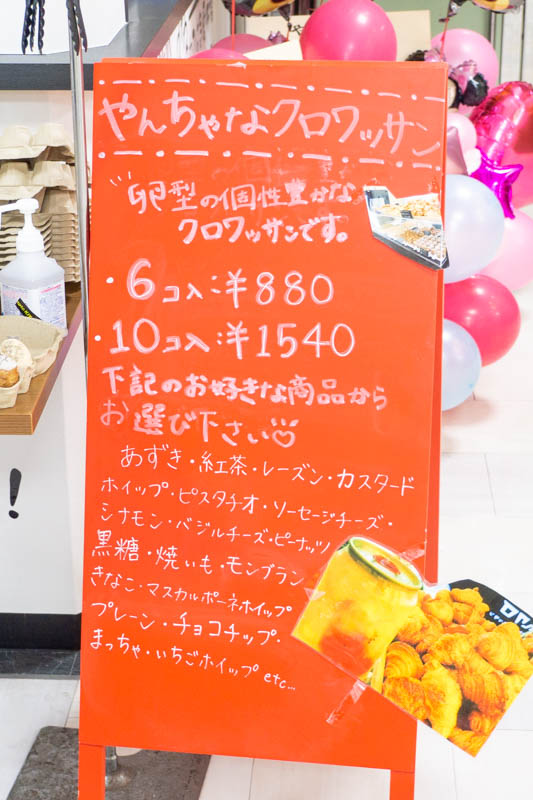 やんちゃなクロワッサン
卵型の個性豊かな
クロワッサンです。
・6コ入:¥880
・10コ入:¥1540
下記のお好きな商品から
お選び下さい♡
あずき・紅茶・レーズン・カスタード
ホイップ・ピスタチオ・ソーセージチーズ・
シナモン・バジルチーズ・ピーナッツ
黒糖・焼いも・モンブラン
きなこ・マスカルポーネホイップ
プレーン・チョコチップ・
まっちゃ・いちごホイップ etc...
!